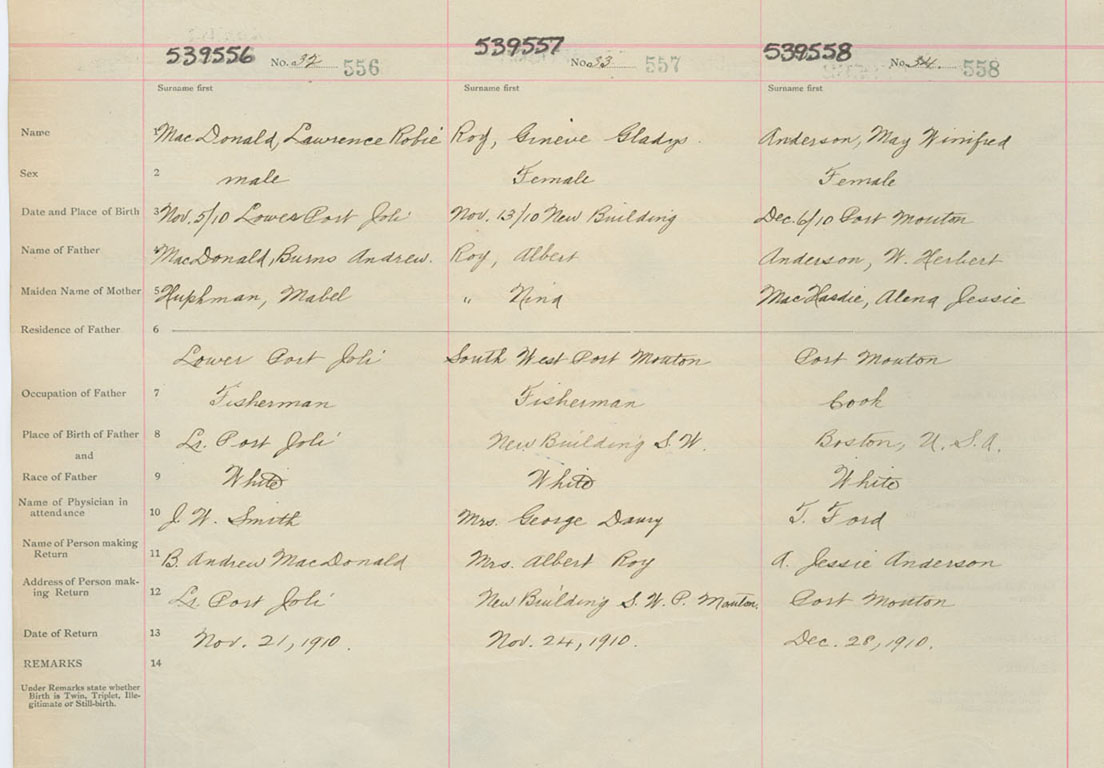 539556 No. 32 556 539557 No. 33 557 539558 No. 34. 558
Surname first Surname first Surname first
Name 1 MacDonald, Lawrence Robie Roy, Gineve Gladys. Anderson, May Winifred
Sex 2 male Female Female
Date and Place of Birth 3 Nov. 5/10 Lower Port Joli Nov. 13/10 New Building Dec. 6/10 Port Mouton
Name of Father 4 MacDonald, Burns Andrew. Roy, Albert Anderson, W. Herbert
Maiden Name of Mother 5 Huphman, Mabel " Nina MacHardie, Alena Jessie
Residence of Father 6
Lower Port Joli South West Port Mouton Port Mouton
Occupation of Father 7 Fisherman Fisherman Cook
Place of Birth of Father 8 Lr. Port Joli New Building S. W. Boston, U. S. A.
and
Race of Father 9 White White White
Name of Physician in
attendance 10 J. W. Smith Mrs. George Daury T. Ford
Name of Person making
Return 11 B. Andrew MacDonald Mrs. Albert Roy A. Jessie Anderson
Address of Person mak-
ing Return 12 Lr. Port Joli New Building S. W. P. Mouton. Port Mouton
Date of Return 13 Nov. 21, 1910. Nov. 24, 1910. Dec. 28, 1910.
REMARKS 14
Under Remarks state whether
Birth is Twin, Triplet, Ille-
gitimate or Still-birth.